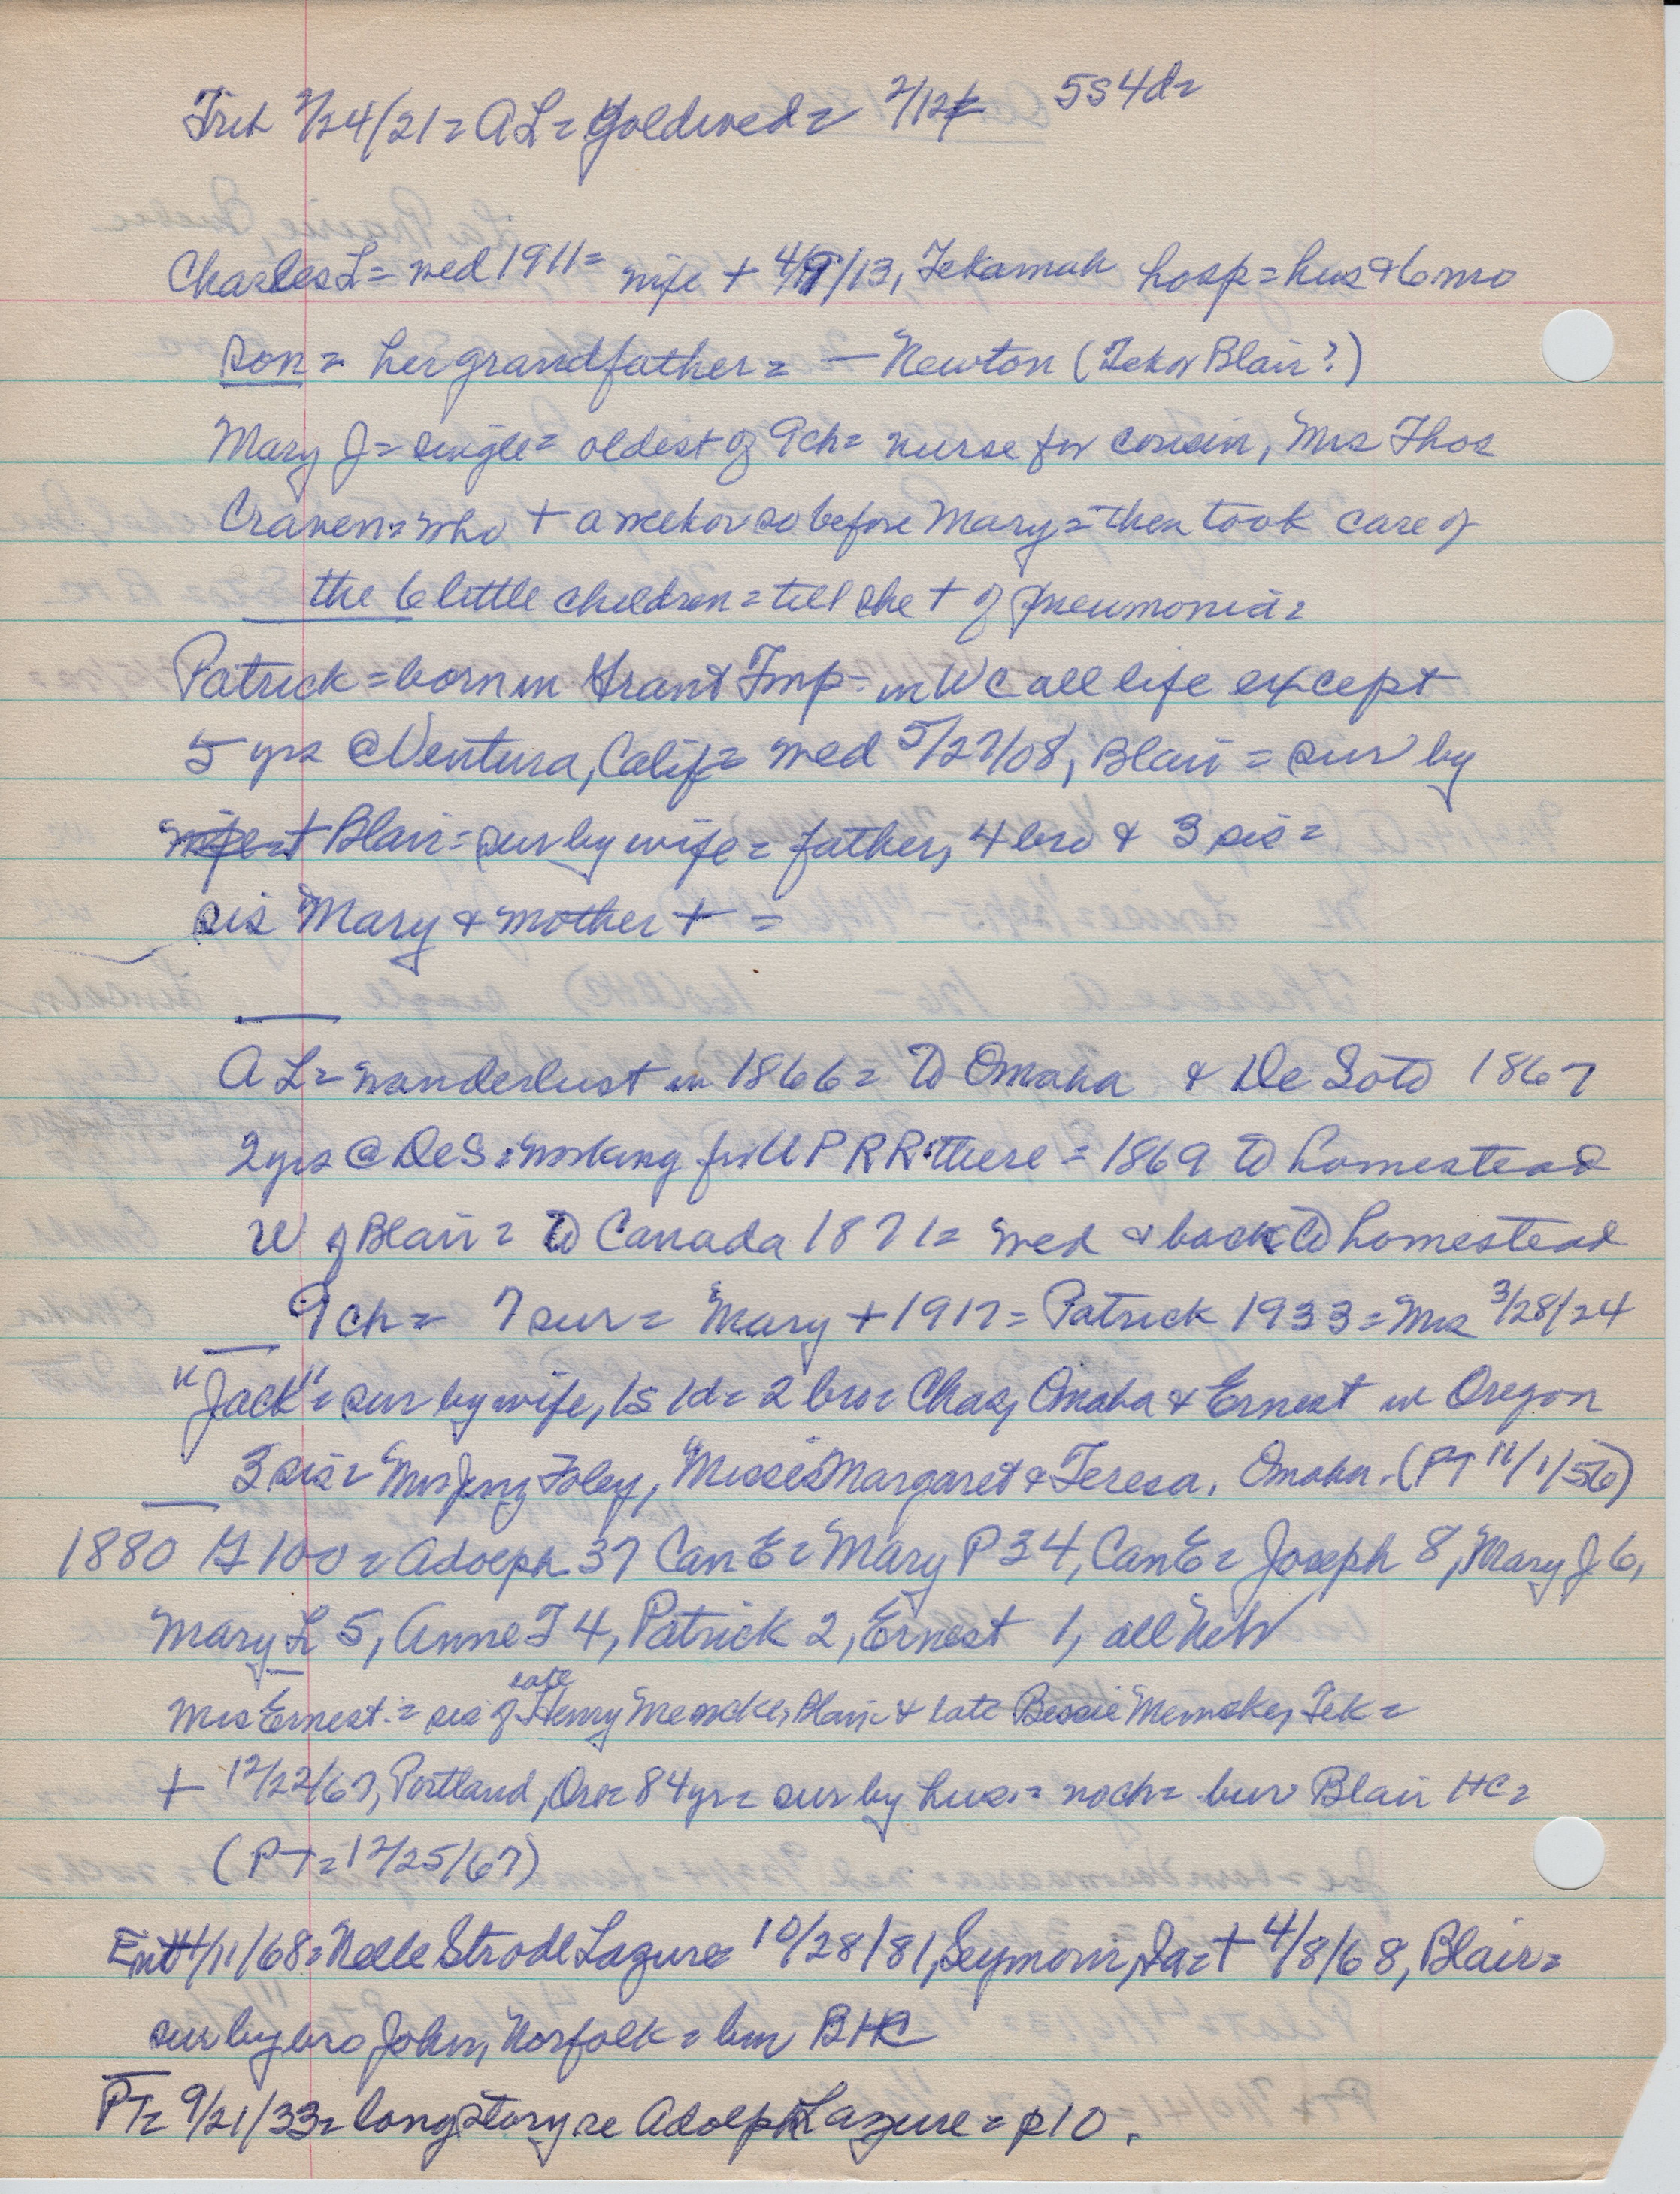 Trib 2/24/21 = A L = Gold wed = 2/12 5s 4d =
Charles L = wed 1911 = wife + 4/9/13, Tekamah hosp = hus & 6 mo
son = her grandfather = — Newton (Tek or Blair?)
Mary J = single = oldest of 9 ch = nurse for cousin, Mrs Thos
Craven = who + a week or so before Mary = then took care of
the 6 little children = till she + of pneumonia =
Patrick = born in Grant Tmp = in WC all life except
5 yrs @ Ventura, Calif = wed 5/27/08, Blair = sur by
wife + Blair = sur by wife = father, 4 bro & 3 sis =
sis Mary & mother + =
A L = wanderlust in 1866 = to Omaha & De Soto 1867
2 yrs @ DeS = working for U P R R there = 1869 to homestead
W of Blair = to Canada 1871 = wed & back to homestead
9 ch = 7 sur = Mary + 1917 = Patrick 1933 = Mrs 3/28/24
"Jack" = sur by wife, 1s 1d = 2 bro = Chas, Omaha & Ernest in Oregon
3 sis = Mrs Jng Foley, Misses Margaret & Teresa, Omaha. (PT 11/1/56)
1880 G 100 = Adolph 37 Can E = Mary P 34, Can E = Joseph 8, Mary J 6,
Mary L 5, Anne T 4, Patrick 2, Ernest 1, all Neb
Mrs Ernest = sis of late Henry Mencke, Blair & late Bessie Mencke, Tek =
+ 12/22/67, Portland, Ore = 84 yr = sur by hus = no ch = bur Blair HC =
(PT = 12/25/67)
Ent 4/11/68 = Nelle Strode Lazure = 10/28/81, Seymour, Ia = + 4/8/68, Blair =
sur by bro John, Norfolk = bur BHC
PT = 9/21/33 = long story re Adolph Lazure = p10.